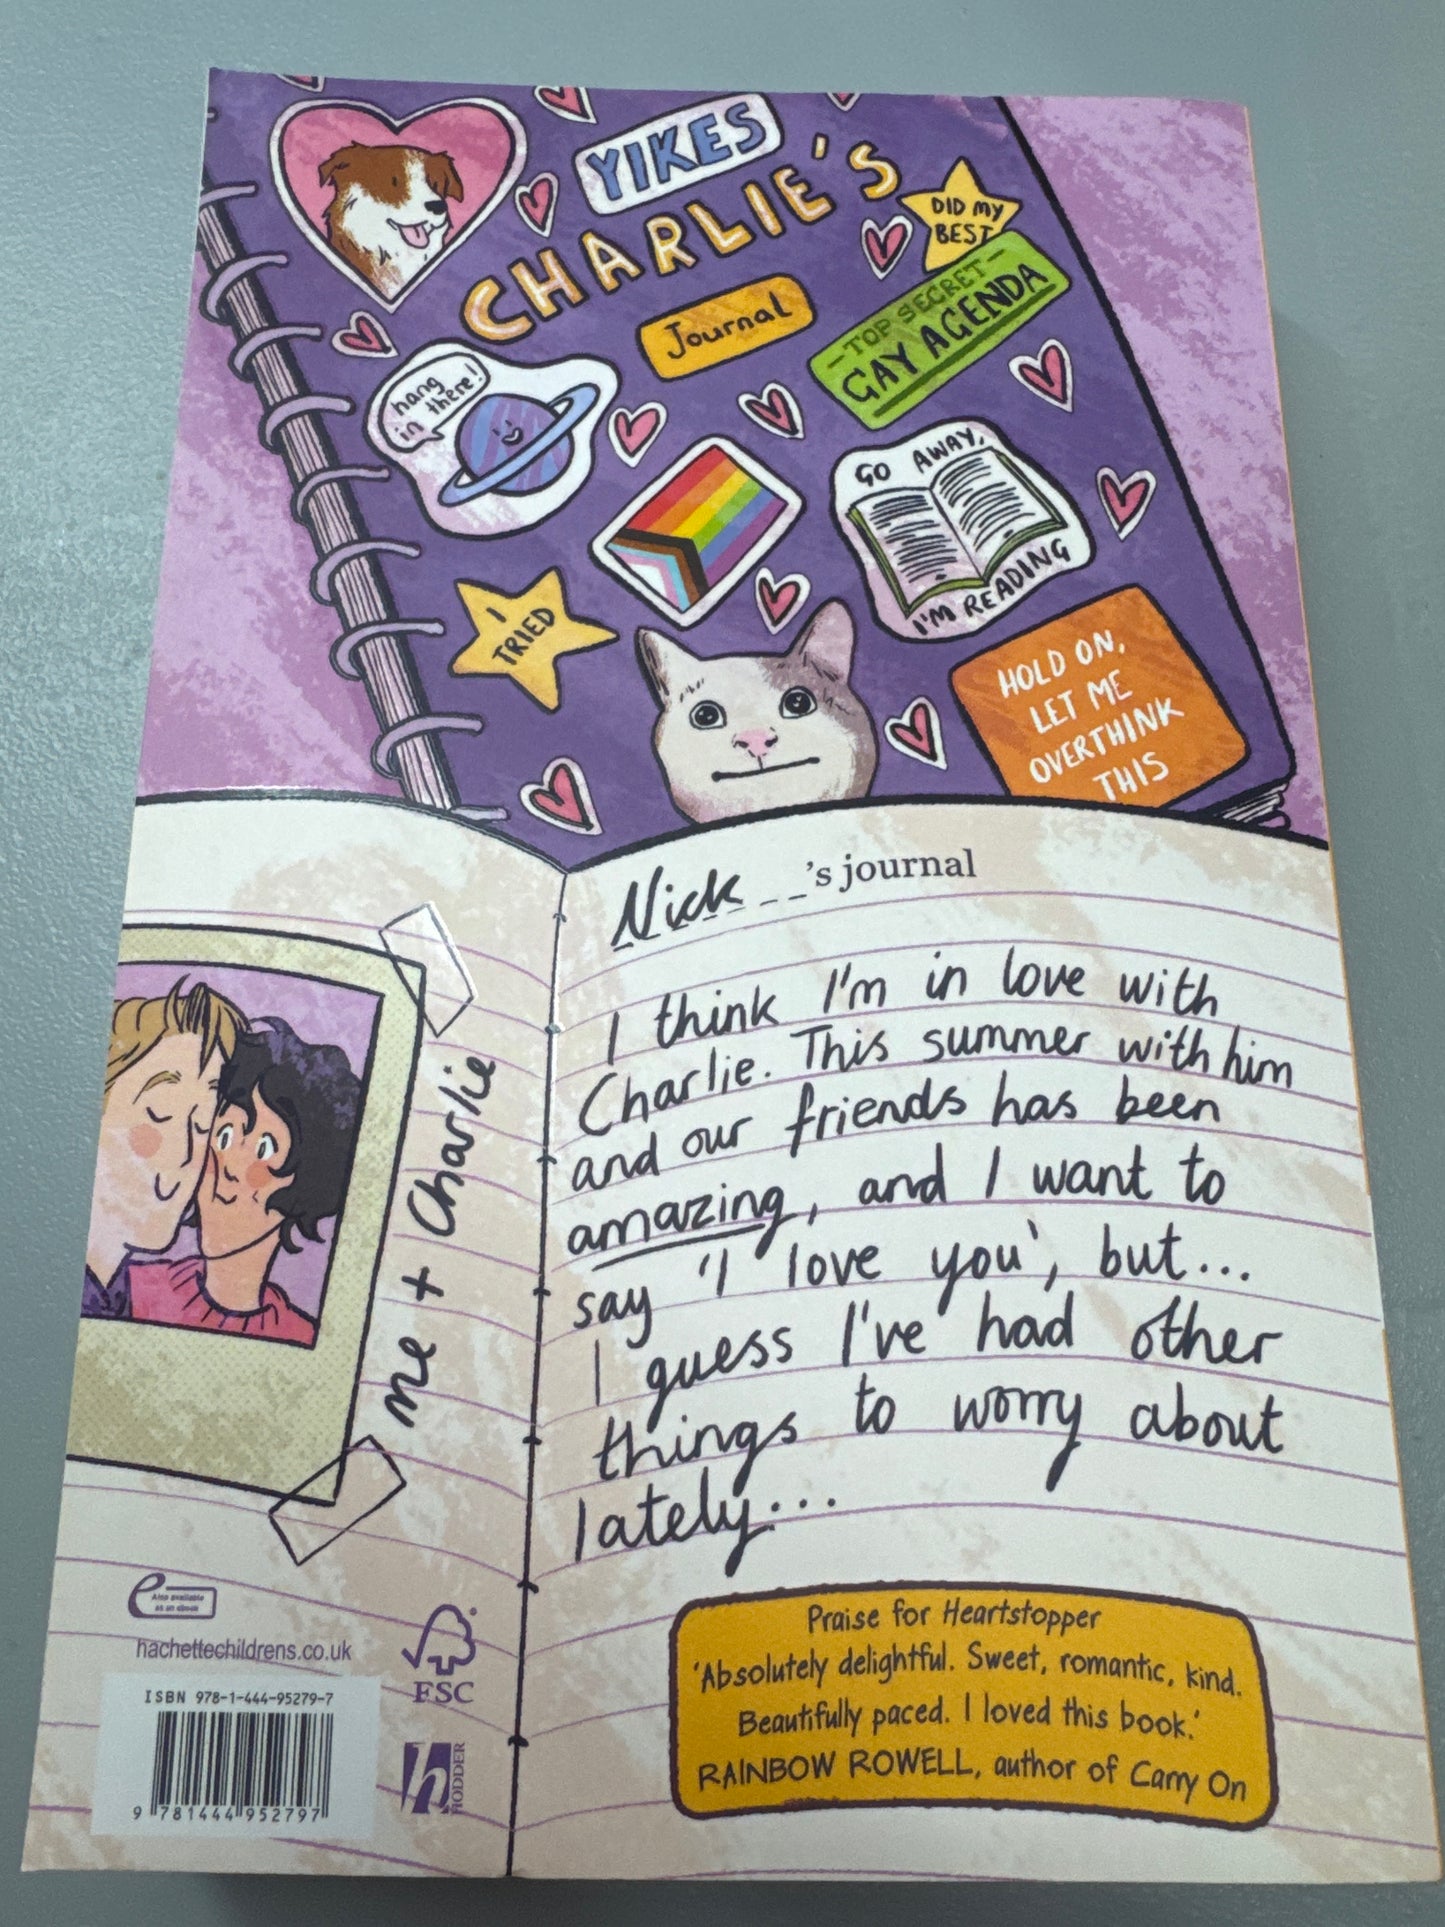 YIKES
CHARLIE'S
Journal
DID MY
BEST
-TOP SECRET-
GAY AGENDA
hang
in there!
GO AWAY,
I'M READING
I
TRIED
HOLD ON,
LET ME
OVERTHINK
THIS
Nick's journal
I think I'm in love with
Charlie. This summer with him
and our friends has been
amazing, and I want to
say 'I love you', but...
I guess I've had other
things to worry about
lately...
me + Charlie
Also available
as an ebook
hachettechildrens.co.uk
FSC
ISBN 978-1-444-95279-7
9 781444 952797
h
HODDER
Praise for Heartstopper
'Absolutely delightful. Sweet, romantic, kind.
Beautifully paced. I loved this book.'
RAINBOW ROWELL, author of Carry On